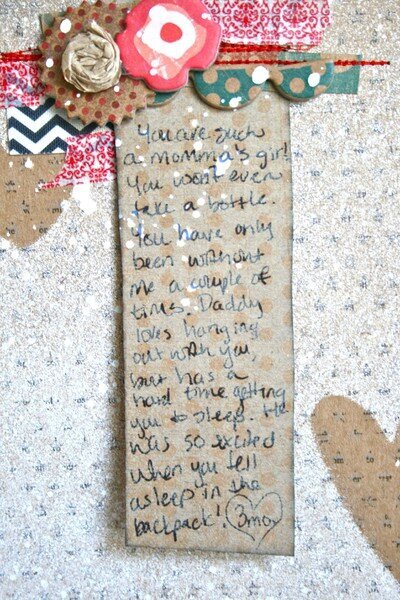 You are such
a momma's girl!
You won't even
take a bottle.
You have only
been without
me a couple of
times. Daddy
loves hanging
out with you,
but has a
hard time getting
you to sleep. He
was so excited
when you fell
asleep in the
backpack! 3mo.